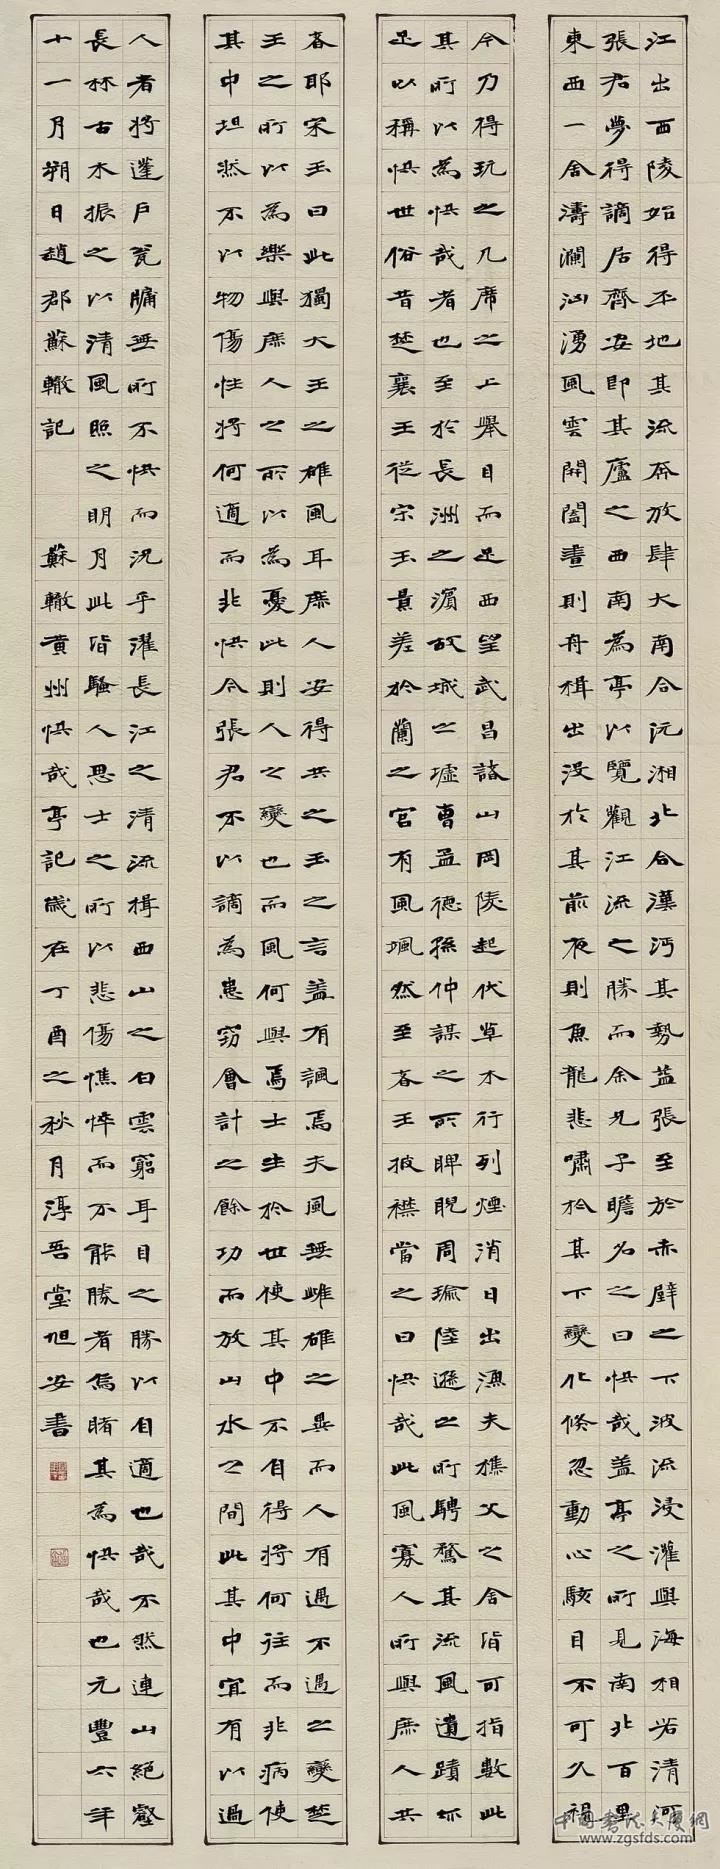 江出西陵始得平地其流奔放肆大南合沅湘北合漢沔其勢益張至於赤壁之下波流浸灌與海相若清河
張君夢得謫居齊安即其廬之西南為亭以覽觀江流之勝而余兄子瞻名之曰快哉蓋亭之所見南北百里
東西一舍濤瀾洶湧風雲開闔晝則舟楫出沒於其前夜則魚龍悲嘯於其下變化倏忽動心駭目不可久視
今乃得玩之几席之上舉目而足西望武昌諸山岡陵起伏草木行列煙消日出漁夫樵父之舍皆可指數此
其所以為快哉者也至於長洲之濱故城之墟曹孟德孫仲謀之所睥睨周瑜陸遜之所騁騖其流風遺蹟亦
足以稱快世俗昔楚襄王從宋玉景差於蘭之宮有風颯然至者王披襟當之曰快哉此風寡人所與庶人共
者耶宋玉曰此獨大王之雄風耳庶人安得共之玉之言蓋有諷焉夫風無雌雄之異而人有遇不遇之變楚
王之所以為樂與庶人之所以為憂此則人之變也而風何與焉士生於世使其中不自得將何往而非病使
其中坦然不以物傷性將何適而非快今張君不以謫為患竊會計之餘功而放山水之間此其中宜有以過
人者將蓬戶甕牖無所不快而況乎濯長江之清流揖西山之白雲窮耳目之勝以自適也哉不然連山絕壑
長林古木振之以清風照之明月此皆騷人思士之所以悲傷憔悴而不能勝者烏睹其為快哉也元豐六年
十一月朔日趙郡蘇轍記 蘇轍黃州快哉亭記歲在丁酉之秋月淳吾堂旭安書
中國書法大廈網
www.zgsfds.com